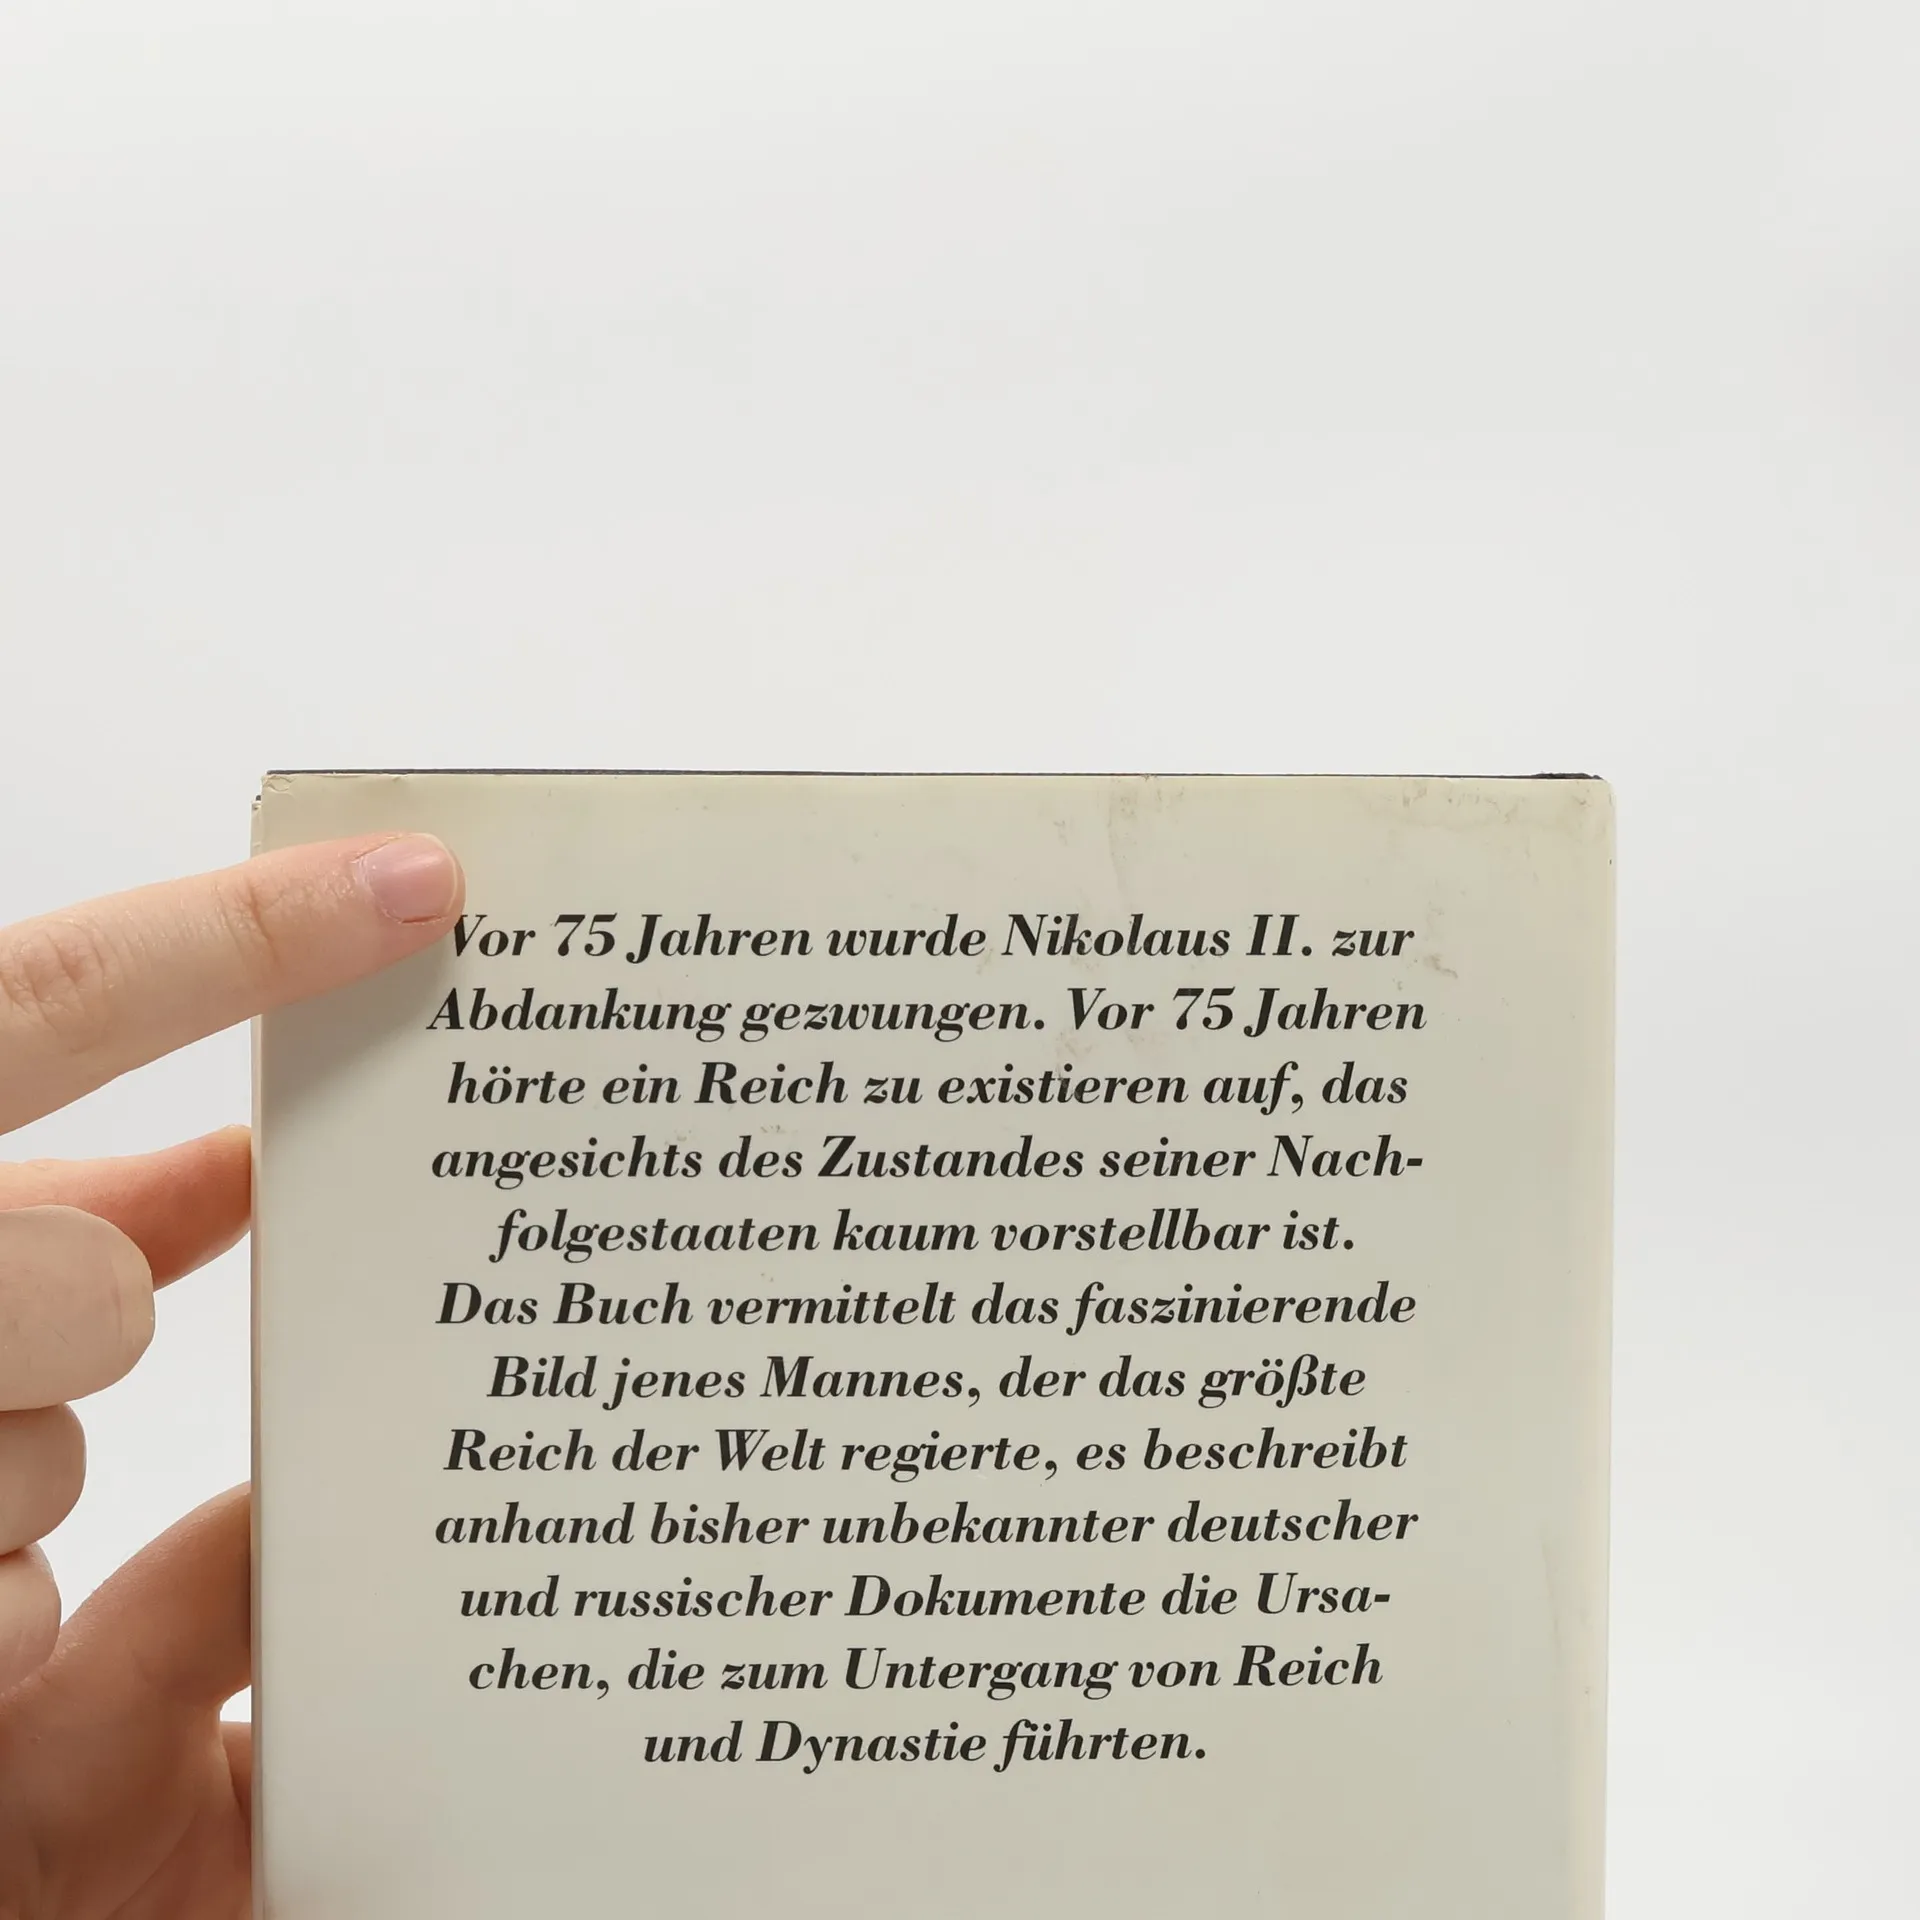 Vor 75 Jahren wurde Nikolaus II. zur
Abdankung gezwungen. Vor 75 Jahren
hörte ein Reich zu existieren auf, das
angesichts des Zustandes seiner Nach-
folgestaaten kaum vorstellbar ist.
Das Buch vermittelt das faszinierende
Bild jenes Mannes, der das größte
Reich der Welt regierte, es beschreibt
anhand bisher unbekannter deutscher
und russischer Dokumente die Ursa-
chen, die zum Untergang von Reich
und Dynastie führten.